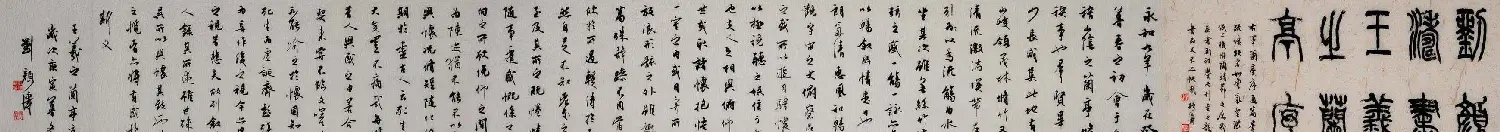 劉顏
濤書
王羲
之蘭
亭序
永和九年歲在癸
暮春之初會于
稽山陰之蘭亭
禊事也羣賢畢
少長咸集此地有
山峻領茂林脩竹又
清流激湍暎帶左
引以為流觴曲水
坐其次雖無絲竹
絃之盛一觴一詠
以暢敘幽情是日
朗氣清惠風和暢
觀宇宙之大俯察品
之盛所以遊目騁懷
以極視聽之娛信可
也夫人之相與俯仰
世或取諸懷抱悟
一室之內或因寄所
放浪形骸之外雖趣
萬殊靜躁不同當
欣於所遇暫得於
然自足不知老之
至及其所之既惓
隨事遷感慨係
向之所欣俛仰之閒
為陳迹猶不能不以
興懷況脩短隨化
期於盡古人云死生
大矣豈不痛哉每
昔人興感之由若合
契未嘗不臨文嗟
不能喻之於懷固知
死生為虛誕齊彭殤
為妄作後之視今
之視昔悲夫故列敘
人錄其所述雖世殊
異所以興懷其致
之攬者亦將有感於
斯文
王羲之蘭亭序
歲次庚寅
劉顏濤